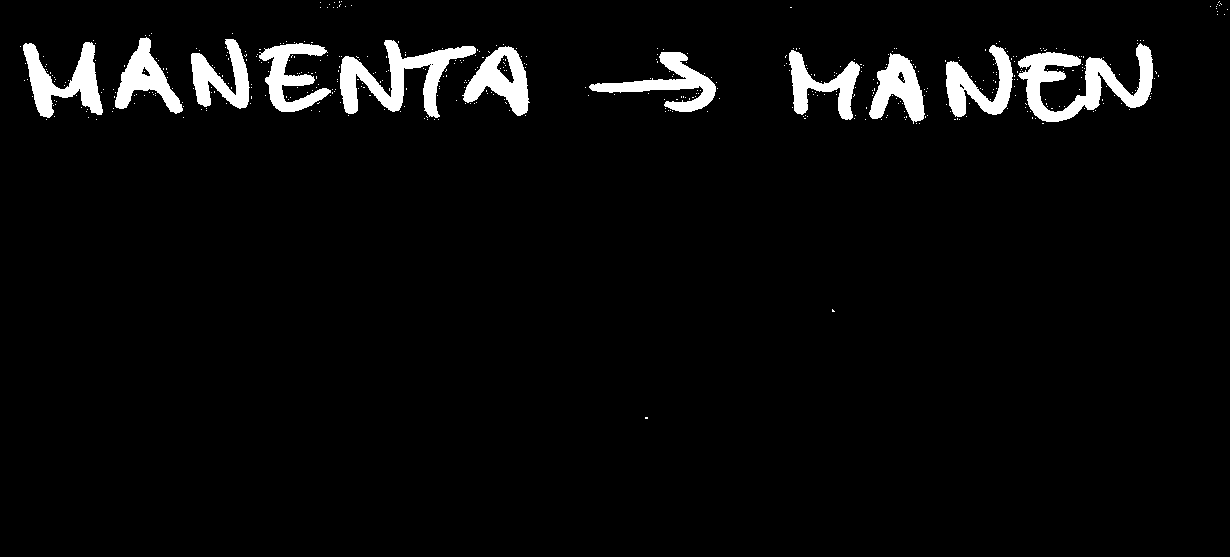 MANENTA → MANEN